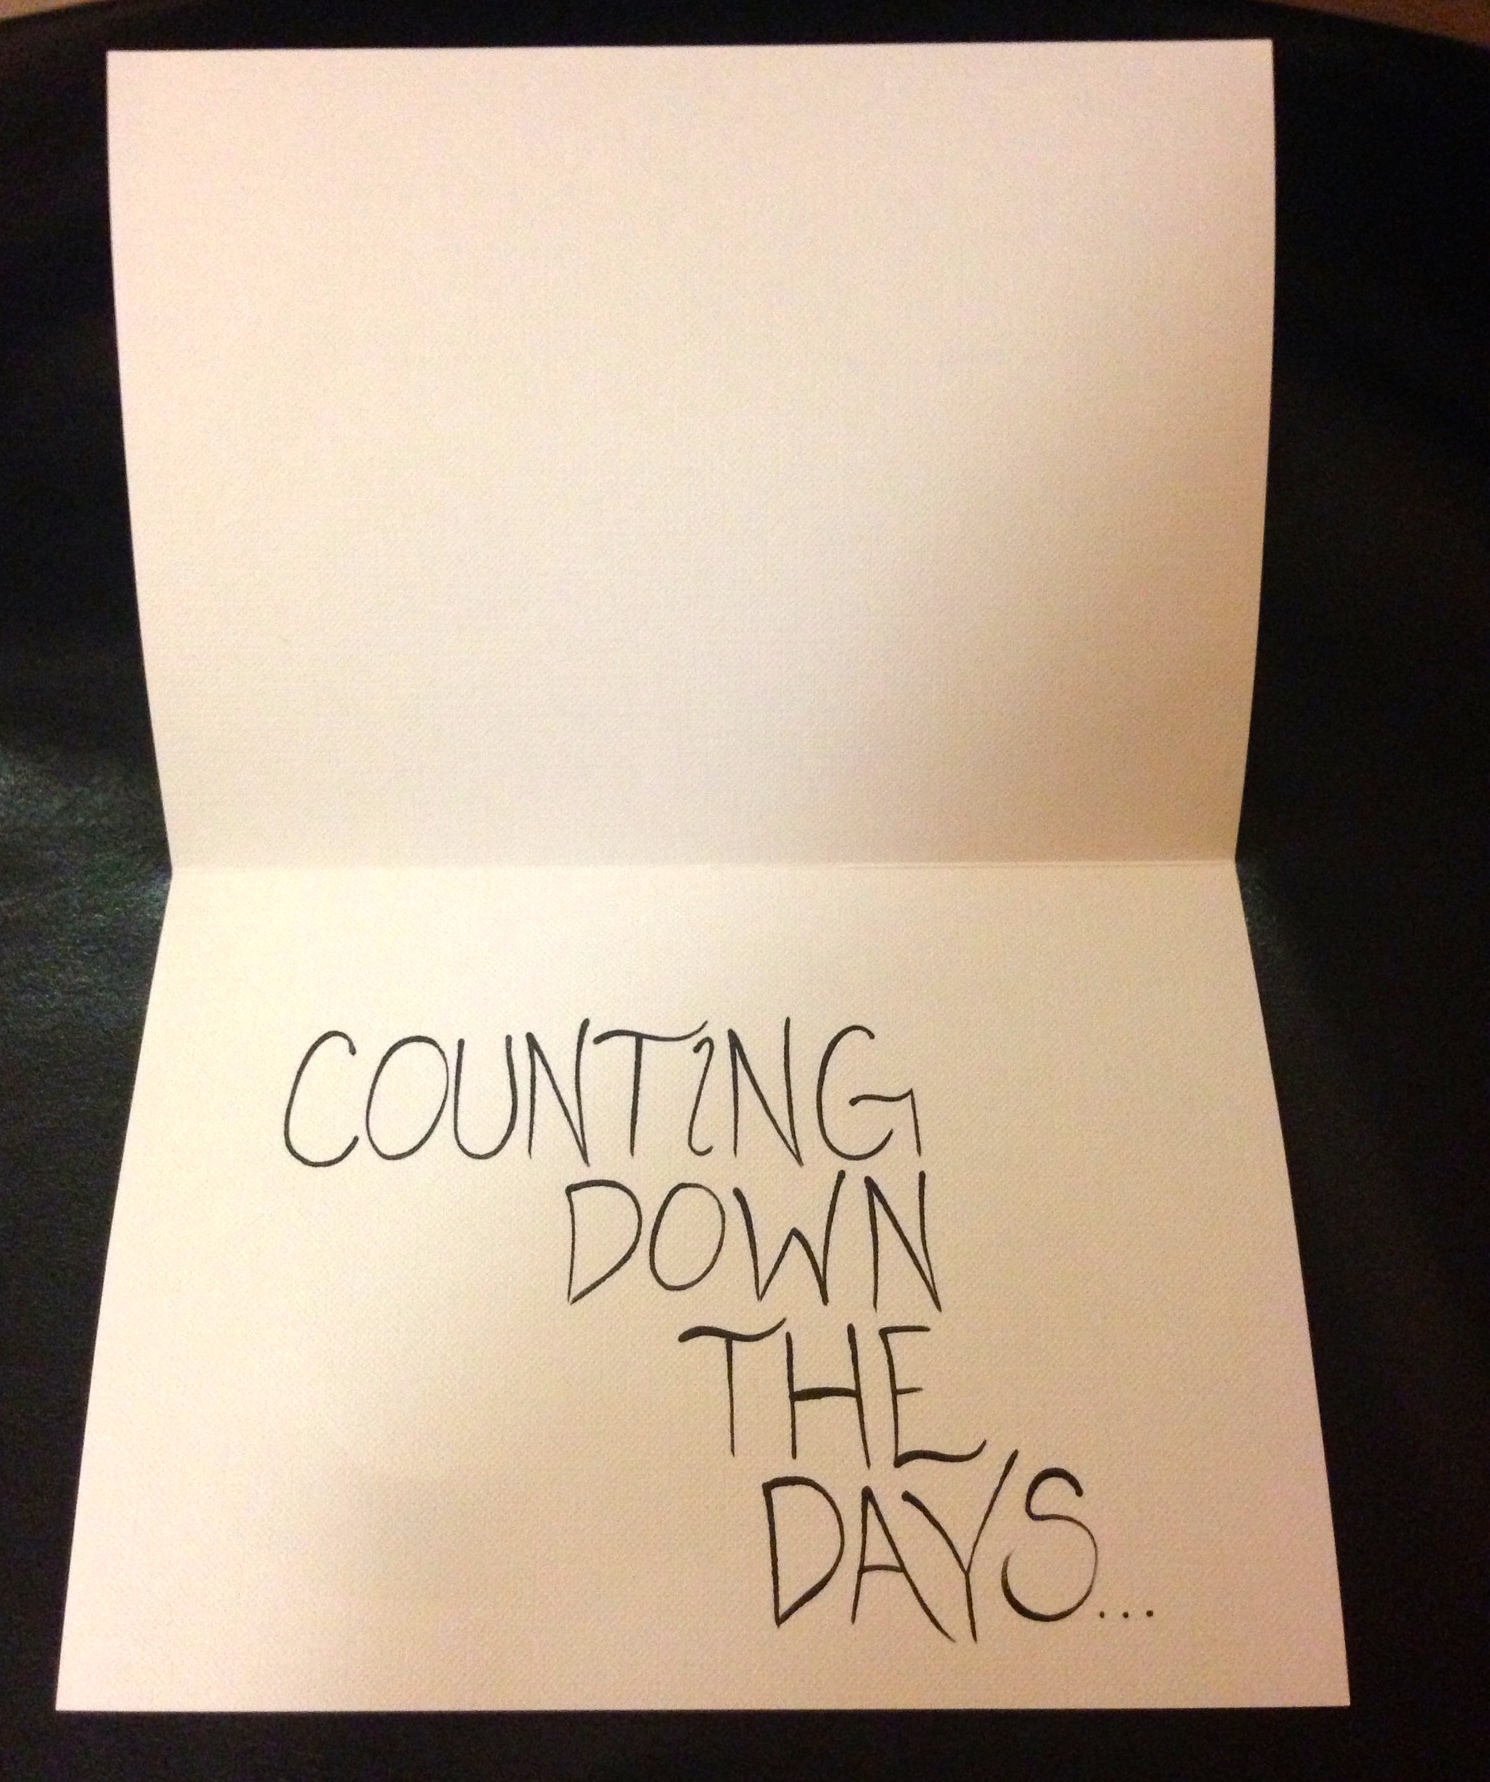 COUNTING
DOWN
THE
DAYS...